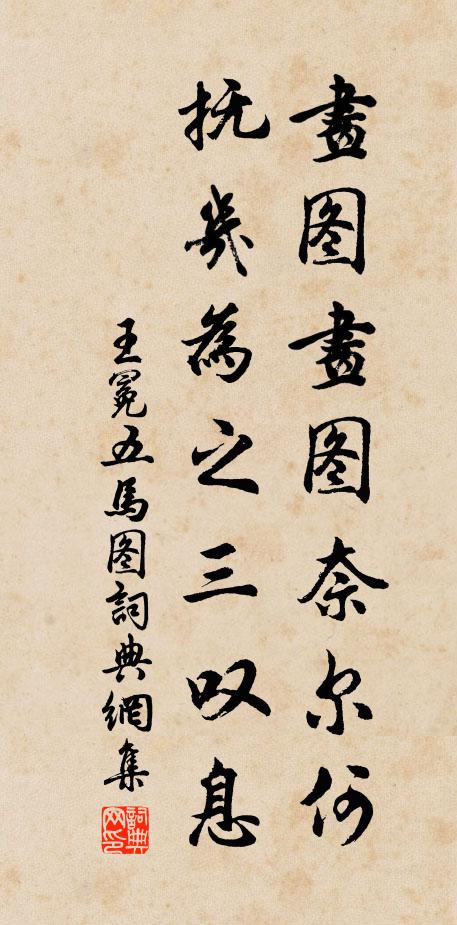 畫图畫图奈尔何
抚几為之三叹息
王冕五馬图詞典網集
詞典网印